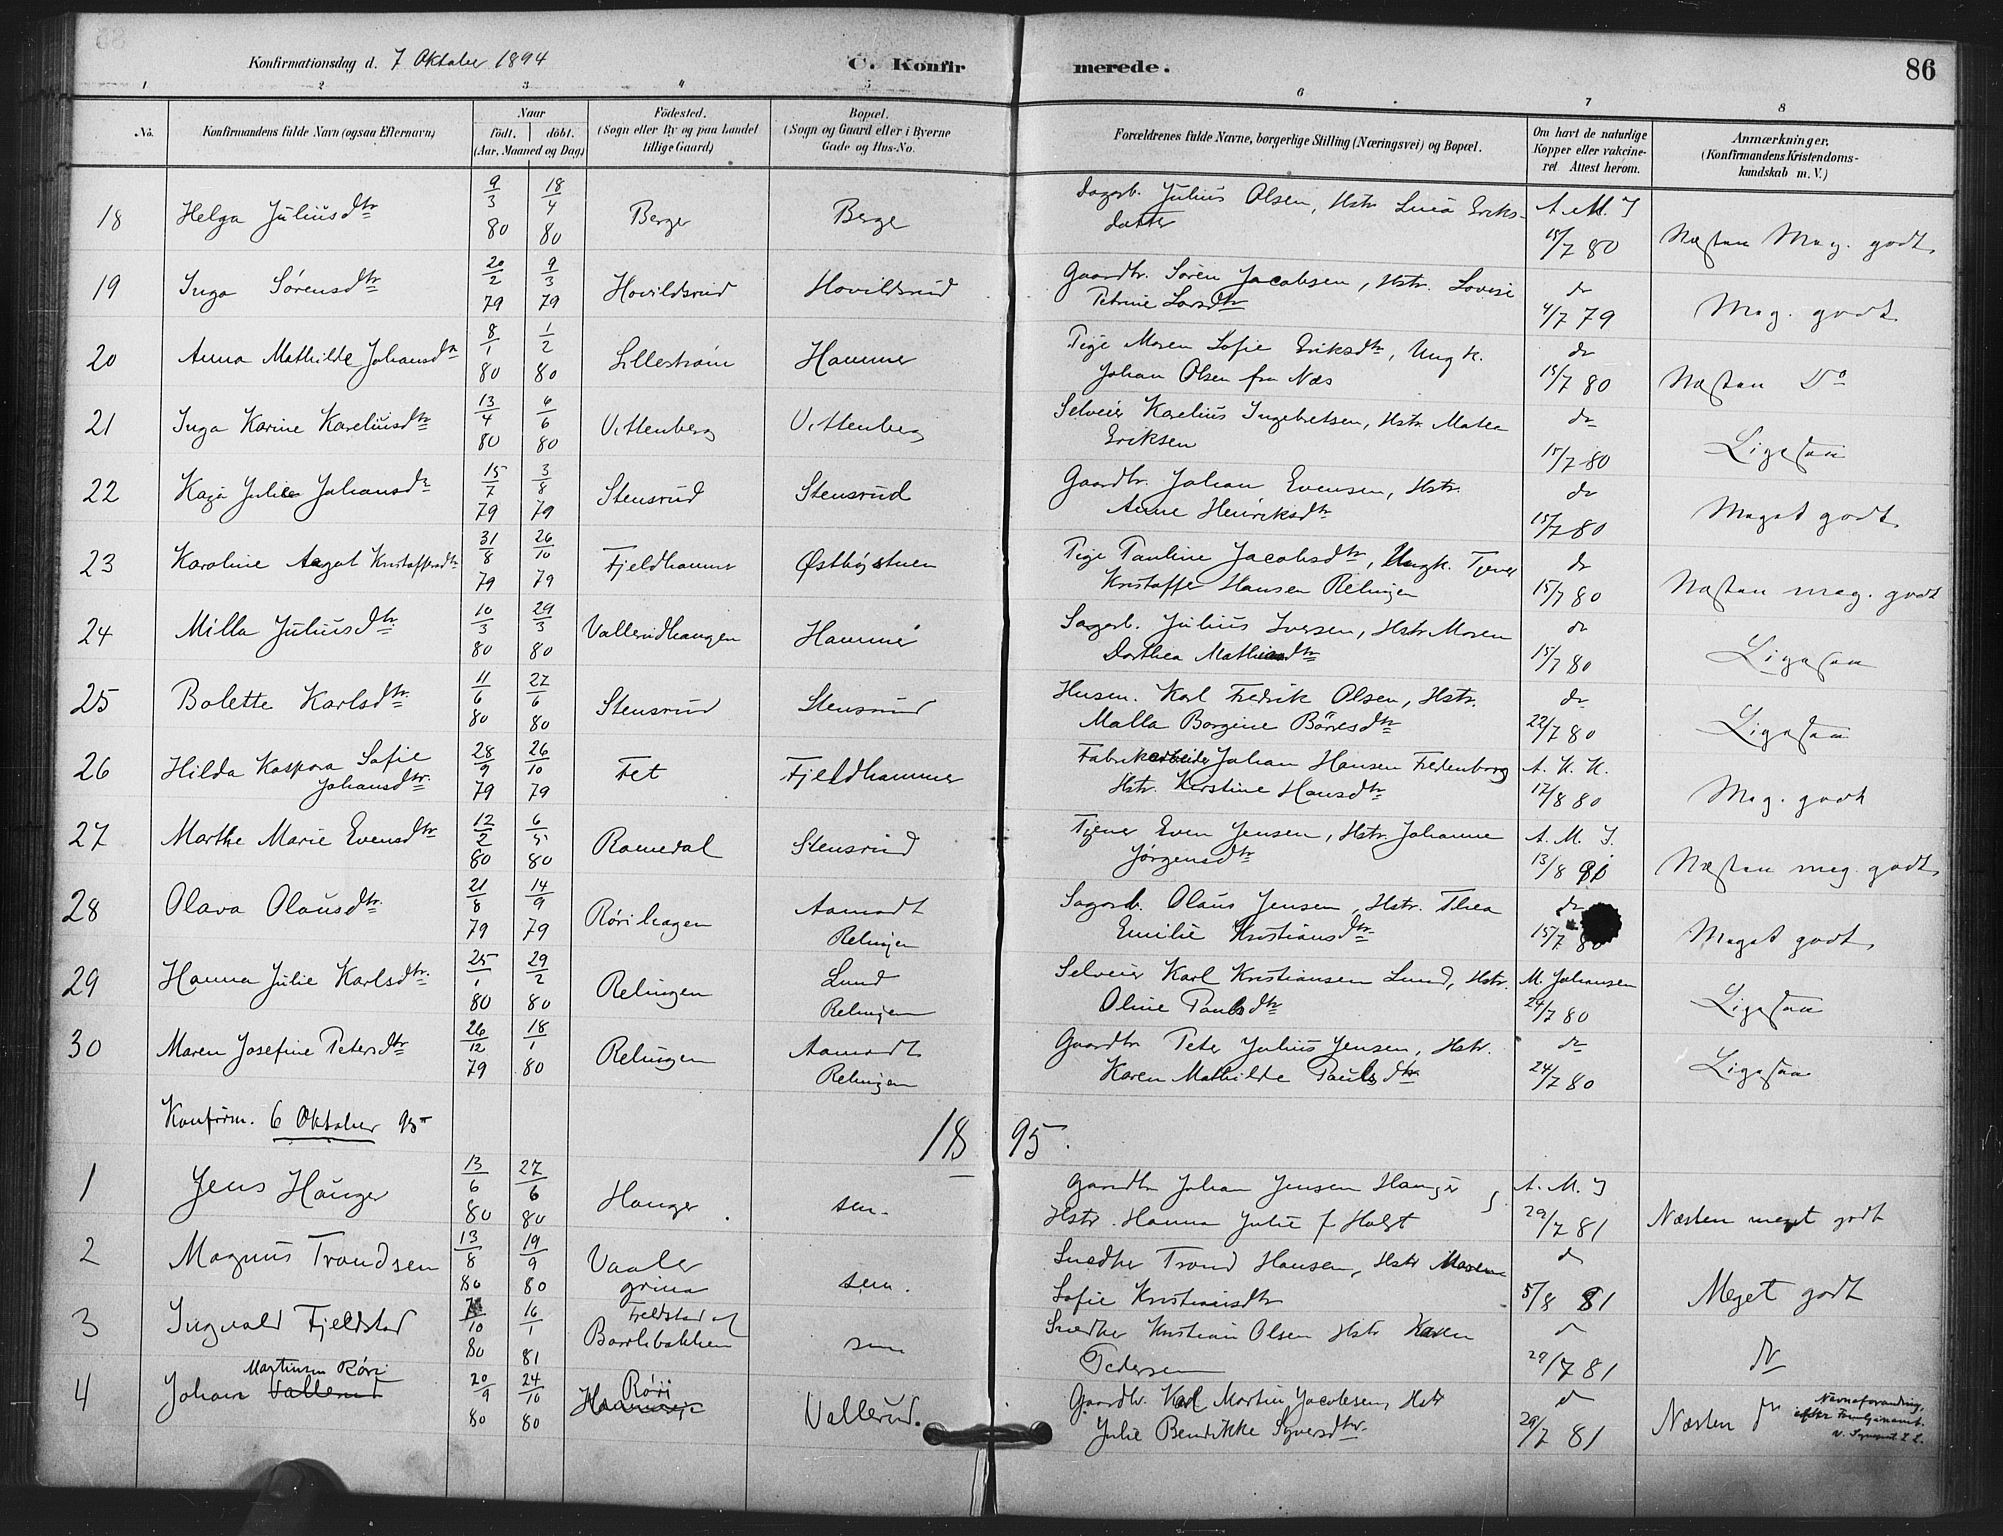 Konfirmationsdag d. 7 Oktober 1894 C. Konfirmerede. 86
1 2 3 4 5 6 7 8
No. Konfirmandens fulde Navn (ogsaa Efternavn) Naar födt. döbt. (Aar, Maaned og Dag) Födested. (Sogn eller By og paa Landet tillige Gaard) Bopæl. (Sogn og Gaard eller i Byerne Gade og Hus-No. Forældrenes fulde Navne, borgerlige Stilling (Næringsvei) og Bopæl. Om havt de naturlige Kopper eller vakcineret Attest herom. Anmærkninger. (Konfirmandens Kristendomskundskab m. V.)
18 Helga Juliusdtr 9/3 80 18/4 80 Berge Berge Dagarb. Julius Olsen, Hstr Lina Eriksdatter A. M. J 15/7 80 Næsten Meg. godt
19 Inga Sørensdtr 20/2 79 9/3 79 Hovildsrud Hovildsrud Gaardbr. Søren Jacobsen, Hstr. Lovise Petrine Larsdtr do 4/7 79 Meg. godt
20 Anna Mathilde Johansdtr 8/1 80 1/2 80 Lillestrøm Hammer Pige Maren Sofie Eriksdtr, Ungk. Johan Olsen fra Næs do 15/7 80 Næsten Do
21 Inga Karine Kareliusdtr 13/4 80 6/6 80 Vittenberg Vittenberg Selveier Karelius Ingebretsen, Hstr Matea Eriksen do 15/7 80 Ligesaa
22 Kaja Julie Johansdtr 15/7 79 3/8 79 Stensrud Stensrud Gaardbr. Johan Evensen, Hstr. Anne Henriksdtr do 15/7 80 Meget godt
23 Karoline Aagot Kristoffersdtr 31/8 79 26/10 79 Fjeldhammer Østbystuen Pige Pauline Jacobsdtr, Ungk. Tjener Kristoffer Hansen Relingen do 15/7 80 Næsten meg. godt
24 Milla Juliusdtr 10/3 80 29/3 80 Vallerudhaugen Hammer Sagarb. Julius Iversen, Hstr Maren Dorthea Mathiasdtr do 15/7 80 Ligesaa
25 Bolette Karlsdtr 11/6 80 27/6 80 Stensrud Stensrud Husm. Karl Fredrik Olsen, Hstr. Malla Borgine Börresdtr do 22/7 80 Ligesaa
26 Hilda Kaspara Sofie Johansdtr 28/9 79 26/10 79 Fet Fjeldhammer Fabrikarbeider Johan Hansen Fredenborg Hstr. Kirstine Hansdtr A. K. K. 17/8 80 Meg. godt
27 Marthe Marie Evensdtr 12/2 80 6/5 80 Romedal Stensrud Tjener Even Jensen, Hstr Johanne Jörgensdtr A. M. J. 13/8 80 Næsten meg. godt
28 Olava Olausdtr 21/8 79 14/9 79 Rørihagen Aamodt Relingen Sagarb. Olaus Jensen, Hstr. Thea Emilie Kristiansdtr do 15/7 80 Meget godt
29 Hanna Julie Karlsdtr 25/1 80 29/2 80 Relingen Lund Relingen Selveier Karl Kristiansen Lund, Hstr. Oline Paulsdtr M. Johansen 24/7 80 Ligesaa
30 Maren Josefine Petersdtr 26/12 79 18/1 80 Relingen Aamodt Relingen Gaardbr Peter Julius Jensen, Hstr. Karen Mathilde Paulsdtr do 24/7 80 Ligesaa
Konfirm. 6 Oktober 95 1895.
1 Jens Hauger 13/6 80 27/6 80 Hauger sm. Gaardbr Johan Jensen Hauger, Hstr. Hanna Julie f Holst A. M. J 29/7 81 Næsten meget godt
2 Magnus Trondsen 13/8 80 19/9 80 Vaaler grina sm. Snedker Trond Hansen, Hstr Maren Sofie Kristiansdtr d 5/8 81 Meget godt
3 Ingvald Fjeldstad 10 80 16/1 81 Fjeldstad Baarlibakken sm Snedker Kristian Olsen Hstr Karen Pedersen d 29/7 81 do
4 Johan Vallerud Martinsen Røri 20/9 80 24/10 80 Hammer Røri Vallerud. Gaardbr. Karl Martin Jacobsen, Hstr Julie Bendikke Syversdtr. d 29/7 81 Næsten do Navneforandring,